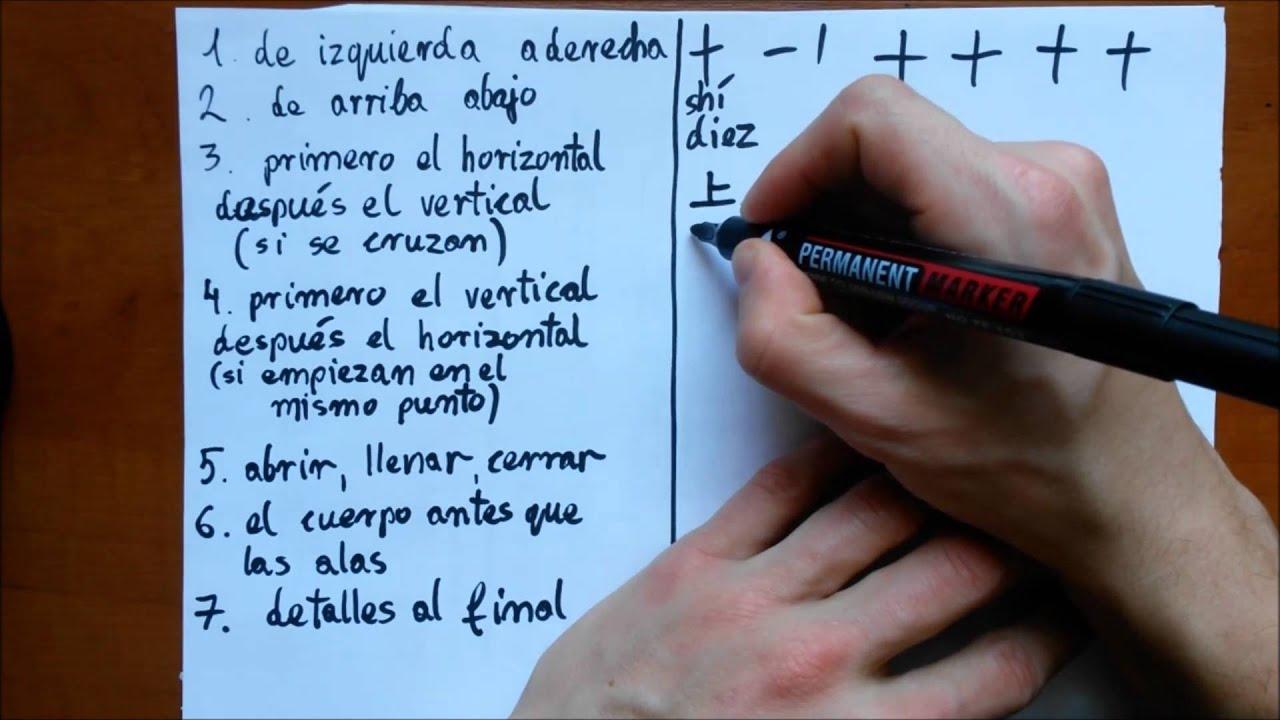 1. de izquierda a derecha
2. de arriba abajo
3. primero el horizontal
después el vertical
(si se cruzan)
4. primero el vertical
después el horizontal
(si empiezan en el
mismo punto)
5. abrir, llenar, cerrar
6. el cuerpo antes que
las alas
7. detalles al final
十 一 丨 十 十 十 十
shí
diez
上
PERMANENT MARKER